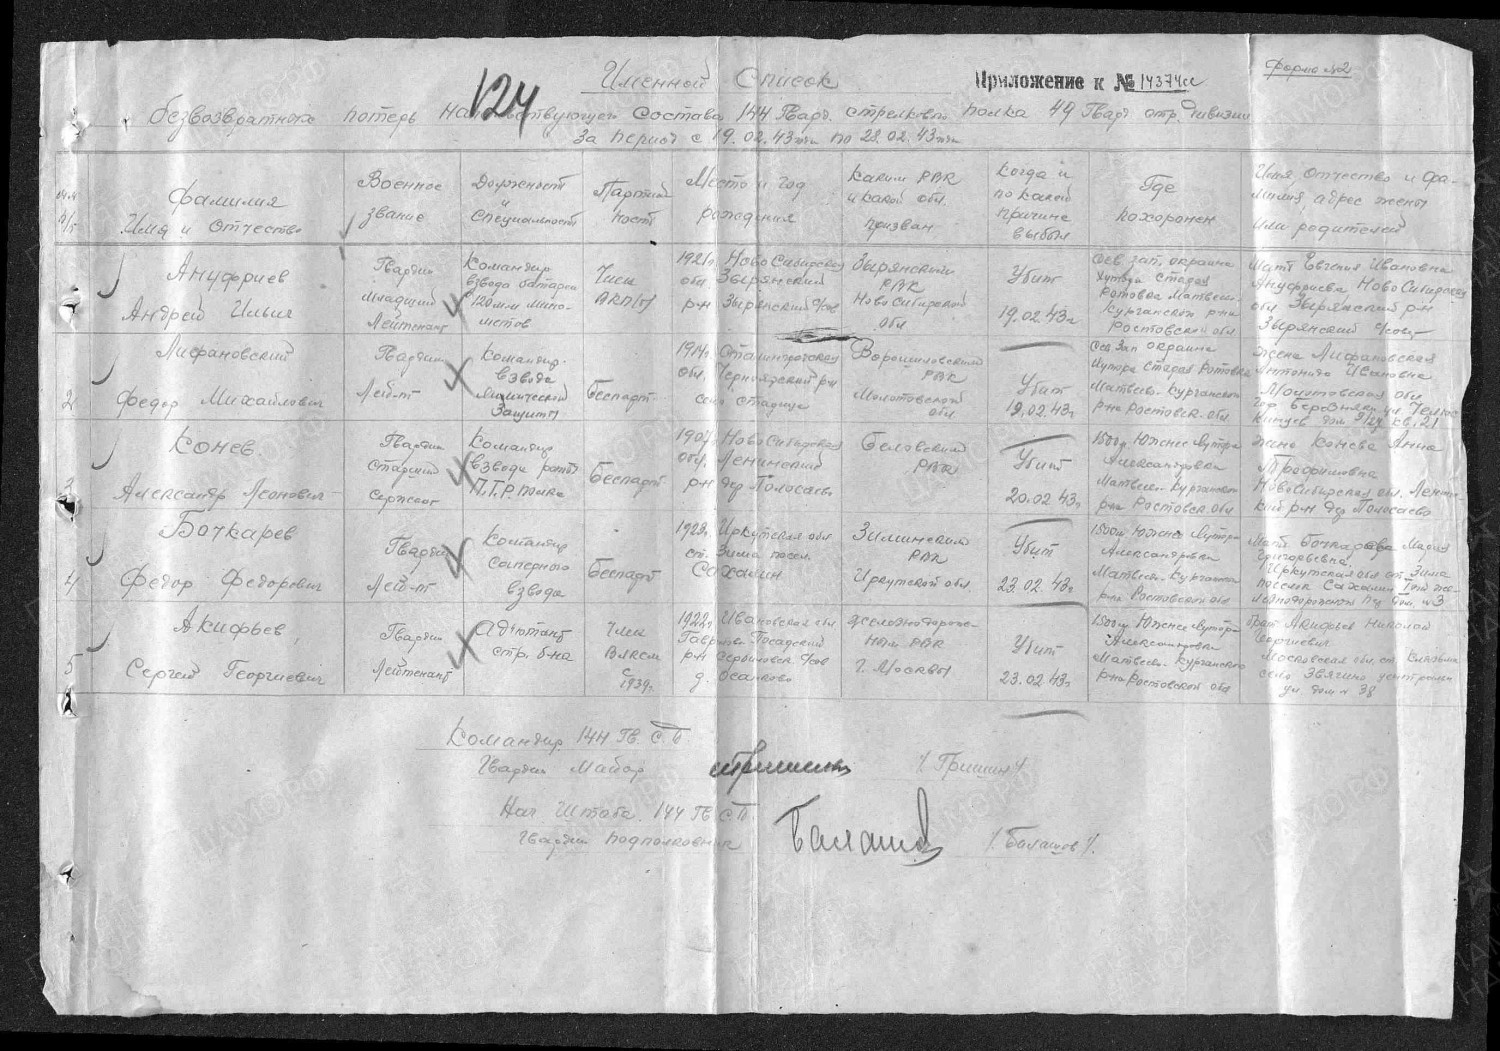 124
Именной Список
Приложение к № 14374сс
Форма №2
безвозвратных потерь начальствующего состава 144 Гвард. стрелкового полка 49 Гвард стр. дивизии
За период с 19.02.43 по 28.02.43
п/п
Фамилия
Имя и Отчество
Военное
звание
Должность
и
специальность
Партий
ность
Место и год
рождения
Каким РВК
и какой обл.
призван
Когда и
по какой
причине
выбыл
Где
похоронен
Имя Отчество и фа-
милия, адрес жены
или родителей
Ануфриев
Андрей Ильич
Гвардии
Младший
Лейтенант
Командир
взвода батареи
120мм мино-
метов
Член
ВКП(б)
1921г. НовоСибирская
обл Зырянский
р-н Зырянский с/сов
Зырянский
РВК
НовоСибирской
обл
Убит
19.02.43г
Сев. зап. окраина
хутора Старая
Ротовка Матвеев-
Курганского р-на
Ростовской обл
Мать Евгения Ивановна
Ануфриева НовоСибирская
обл Зырянский р-н
Зырянский с/сов
2
Лифановский
Федор Михайлович
Гвардии
Лей-т
Командир
взвода
химической
Защиты
Беспарт
1914г. Сталинградская
обл. Черноярский р-н
село Старица
Ворошиловский
РВК
Молотовской
обл
Убит
19.02.43г
Сев Зап окраина
Хутора Старая Ротовка
Матвеево-Курганского
р-на Ростовск. обл
жена Лифановская
Антонида Ивановна
Молотовская обл
гор Березняки ул. Челюс
кинцев дом 9/24 кв. 21
3
Конев
Александр Леонович
Гвардии
Старший
Сержант
Командир
взвода роты
П.Т.Р. полка
Беспарт
1907г. НовоСибирская
обл. Ленинский
р-н дер Полосаево
Беловский
РВК
Убит
20.02.43г
1500м Южнее Хутора
Александровка
Матвеево-Курганского
р-на Ростовск. обл
жена Конева Анна
Трофимовна
НовоСибирская обл. Ленин
ский р-н дер Полосаево
4
Бочкарев
Федор Федорович
Гвардии
Лей-т
Командир
саперного
взвода
Беспарт
1923г. Иркутская обл
ст. Зима посел.
Сахалин
Зиминский
РВК
Иркутской обл
Убит
23.02.43г
1500м Южнее Хутора
Александровка
Матвеево-Курганского
р-на Ростовской обл
Мать Бочкарева Мария
Григорьевна
Иркутская обл ст. Зима
поселок Сахалин
5
Акифьев
Сергей Георгиевич
Гвардии
Лейтенант
Адъютант
стр. б-на
Член
ВЛКСМ
с
1939г.
1922г. Ивановская обл
Гаврилово-Посадский
р-н Сербиловск с/сов
д. Осаново
железнодорож-
ным РВК
г. Москвы
Убит
23.02.43г
1500м Южнее Хутора
Александровка
Матвеево-Курганского
р-на Ростовской обл
брат Акифьев Николай
Георгиевич
Московская обл, ст.
село Звягино центральн
ул дом № 38
Командир 144 Гв. С.П.
Гвардии Майор Гришин /Гришин/
Нач. Штаба 144 Гв С П
Гвардии подполковник Балашов /Балашов/